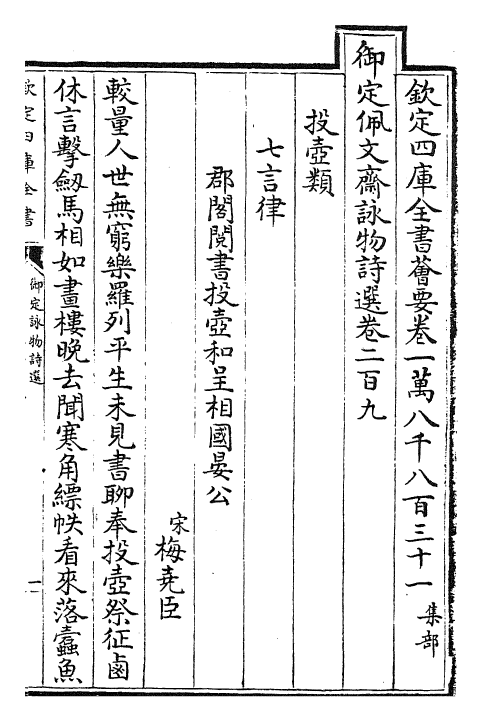 欽定四庫全書薈要卷一萬八千八百三十一 集部
御定佩文齋詠物詩選卷二百九
投壺類
七言律
郡閣閱書投壺和呈相國晏公
宋 梅堯臣
較量人世無窮樂羅列平生未見書聊奉投壺祭征鹵
休言擊劒馬相如畫樓晚去聞寒角縹帙看來落蠹魚
欽定四庫全書
御定詠物詩選
一